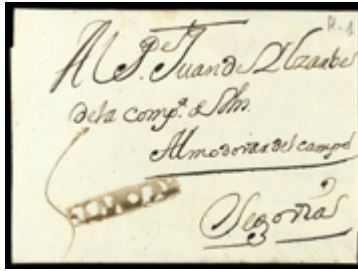 A-1
Al P.e Juan de Ylzarbe
dela comp.a de Jhs.
Almodovar del campo
Segovia